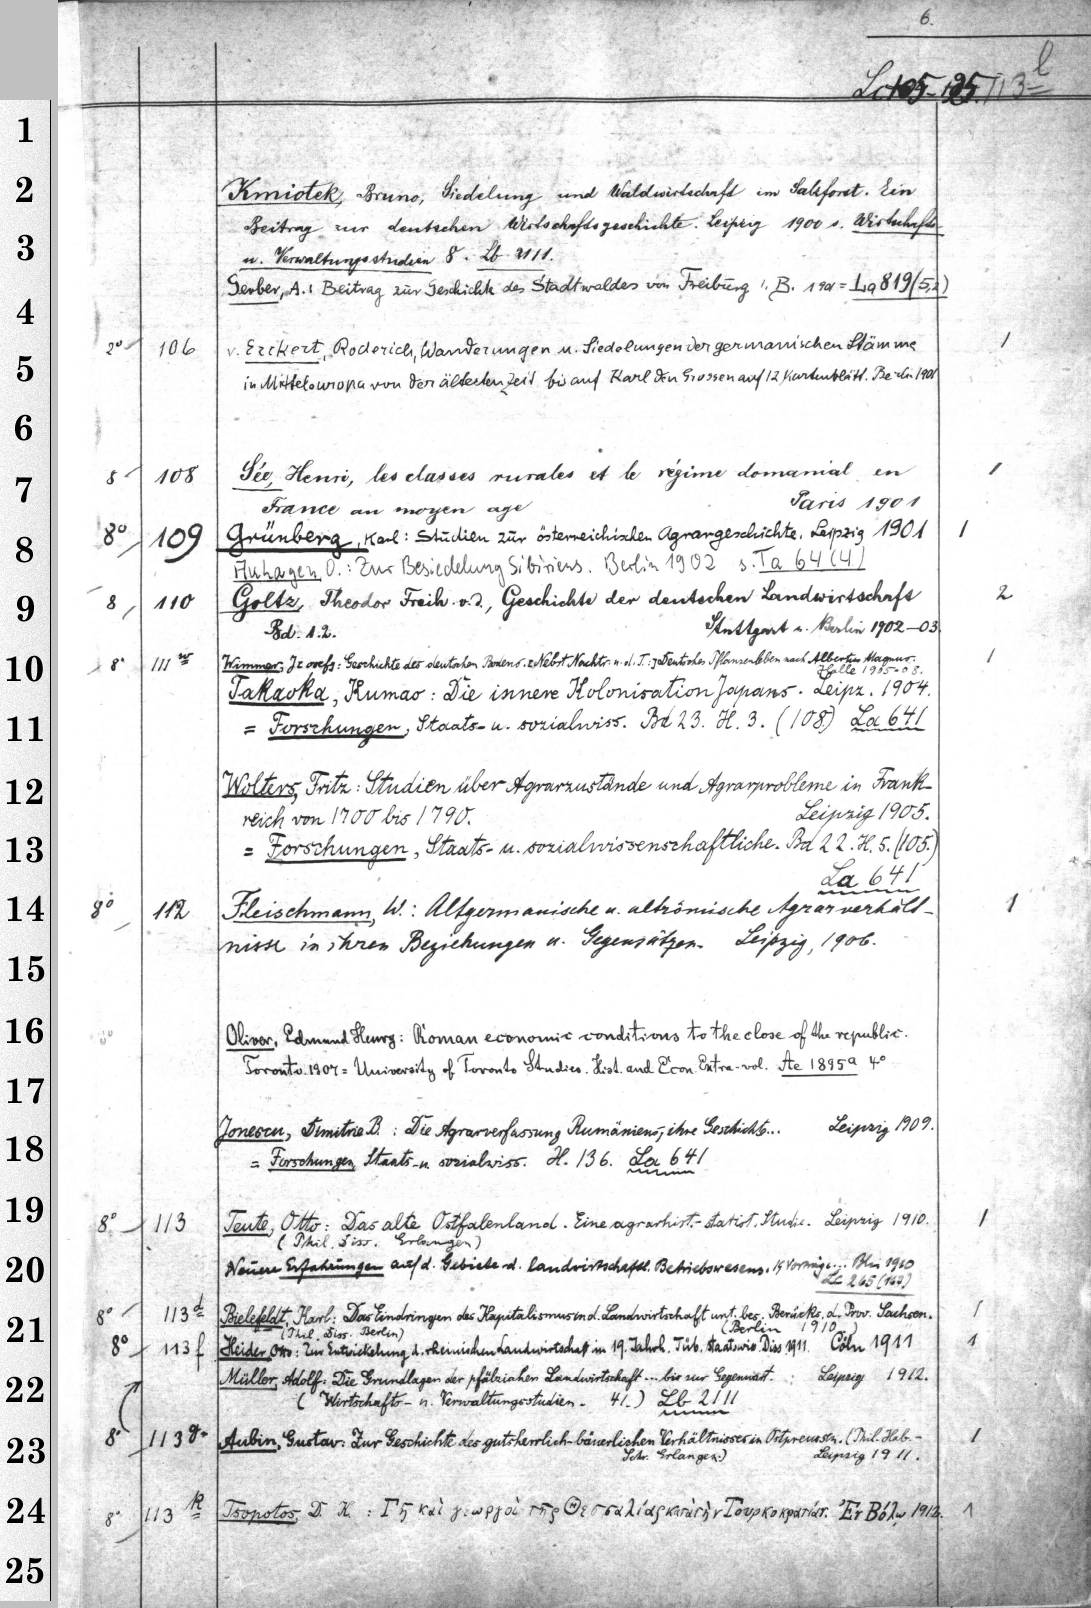 6.
Lc 105-125. 113 l
1
2 Kmiotek, Bruno, Siedelung und Waldwirtschaft im Salzforst. Ein
Beitrag zur deutschen Wirtschaftsgeschichte. Leipzig 1900 s. Wirtschafts-
3 u. Verwaltungsstudien 8. Lb 2111.
Gerber, A.: Beitrag zur Geschichte des Stadtwaldes von Freiburg i. B. 1901 = La 819 (5,2)
4
2° 106 v. Erckert, Roderich, Wanderungen u. Siedelungen der germanischen Stämme 1
5 in Mitteleuropa von der ältesten Zeit bis auf Karl den Grossen auf 12 Kartenblätt. Berlin 1901
6
8 108 Sée, Henri, les classes rurales et le régime domanial en 1
7 France au moyen age Paris 1901
8° 109 Grünberg, Karl: Studien zur österreichischen Agrargeschichte. Leipzig 1901 1
8 Auhagen, O.: Zur Besiedelung Sibiriens. Berlin 1902 s. Ta 64 (4)
8 110 Goltz, Theodor Freih. v. d., Geschichte der deutschen Landwirtschaft 2
9 Bd. 1. 2. Stuttgart u. Berlin 1902-03.
10 8° 111 w Wimmer, Josefs: Geschichte des deutschen Bodens. Nebst Nachtr. u. d. T.: Deutsches Pflanzenleben nach Albertus Magnus. 1
Halle 1905-08.
Takaoka, Kumao: Die innere Kolonisation Japans. Leipz. 1904.
11 = Forschungen, Staats- u. sozialwiss. Bd 23. H. 3. (108) La 641
12 Wolters, Fritz: Studien über Agrarzustände und Agrarprobleme in Frank-
reich von 1700 bis 1790. Leipzig 1905.
13 = Forschungen, Staats- u. sozialwissenschaftliche. Bd 22. H. 5. (105.)
La 641
14 8° 112 Fleischmann, W.: Altgermanische u. altrömische Agrarverhält- 1
nisse in ihren Beziehungen u. Gegensätzen. Leipzig, 1906.
15
16 Oliver, Edmund Henry: Roman economic conditions to the close of the republic.
Toronto 1907 = University of Toronto Studies. Hist. and Econ. Extra-vol. Ae 1895a 4°
17
Jonescu, Dimitrie B.: Die Agrarverfassung Rumäniens, ihre Geschichte... Leipzig 1909.
18 = Forschungen Staats- u. sozialwiss. H. 136. La 641
19 8° 113 Teute, Otto: Das alte Ostfalenland. Eine agrarhist.-statist. Studie. Leipzig 1910. 1
(Phil. Diss. Erlangen)
20 Neuere Erfahrungen auf d. Gebiete d. landwirtschaftl. Betriebswesens. 15 Vorträge... Bln 1910
Lc 265 (167)
8° 113 d Bielefeldt, Karl: Das Eindringen des Kapitalismus in d. Landwirtschaft unt. bes. Berücks. d. Prov. Sachsen. 1
21 (Phil. Diss. Berlin) (Berlin 1910)
8° 113 f Heider, Otto: Zur Entwickelung d. rheinischen Landwirtschaft in 19. Jahrh. Tüb. Staatswiss. Diss 1911. Cöln 1911 1
22 Müller, Adolf: Die Grundlagen der pfälzischen Landwirtschaft ... bis zur Gegenwart. Leipzig 1912.
(Wirtschafts- u. Verwaltungsstudien. 41.) Lb 2111
23 8° 113 g Aubin, Gustav: Zur Geschichte des gutsherrlich-bäuerlichen Verhältnisses in Ostpreussen. (Phil. Hab.- 1
Schr. Erlangen.) Leipzig 1911.
24 8° 113 k Tsopotos, D. K.: Γῆ καὶ γεωργοὶ τῆς Θεσσαλίας κατὰ τὴν Τουρκοκρατίαν. Ἐν Βόλῳ 1912. 1
25